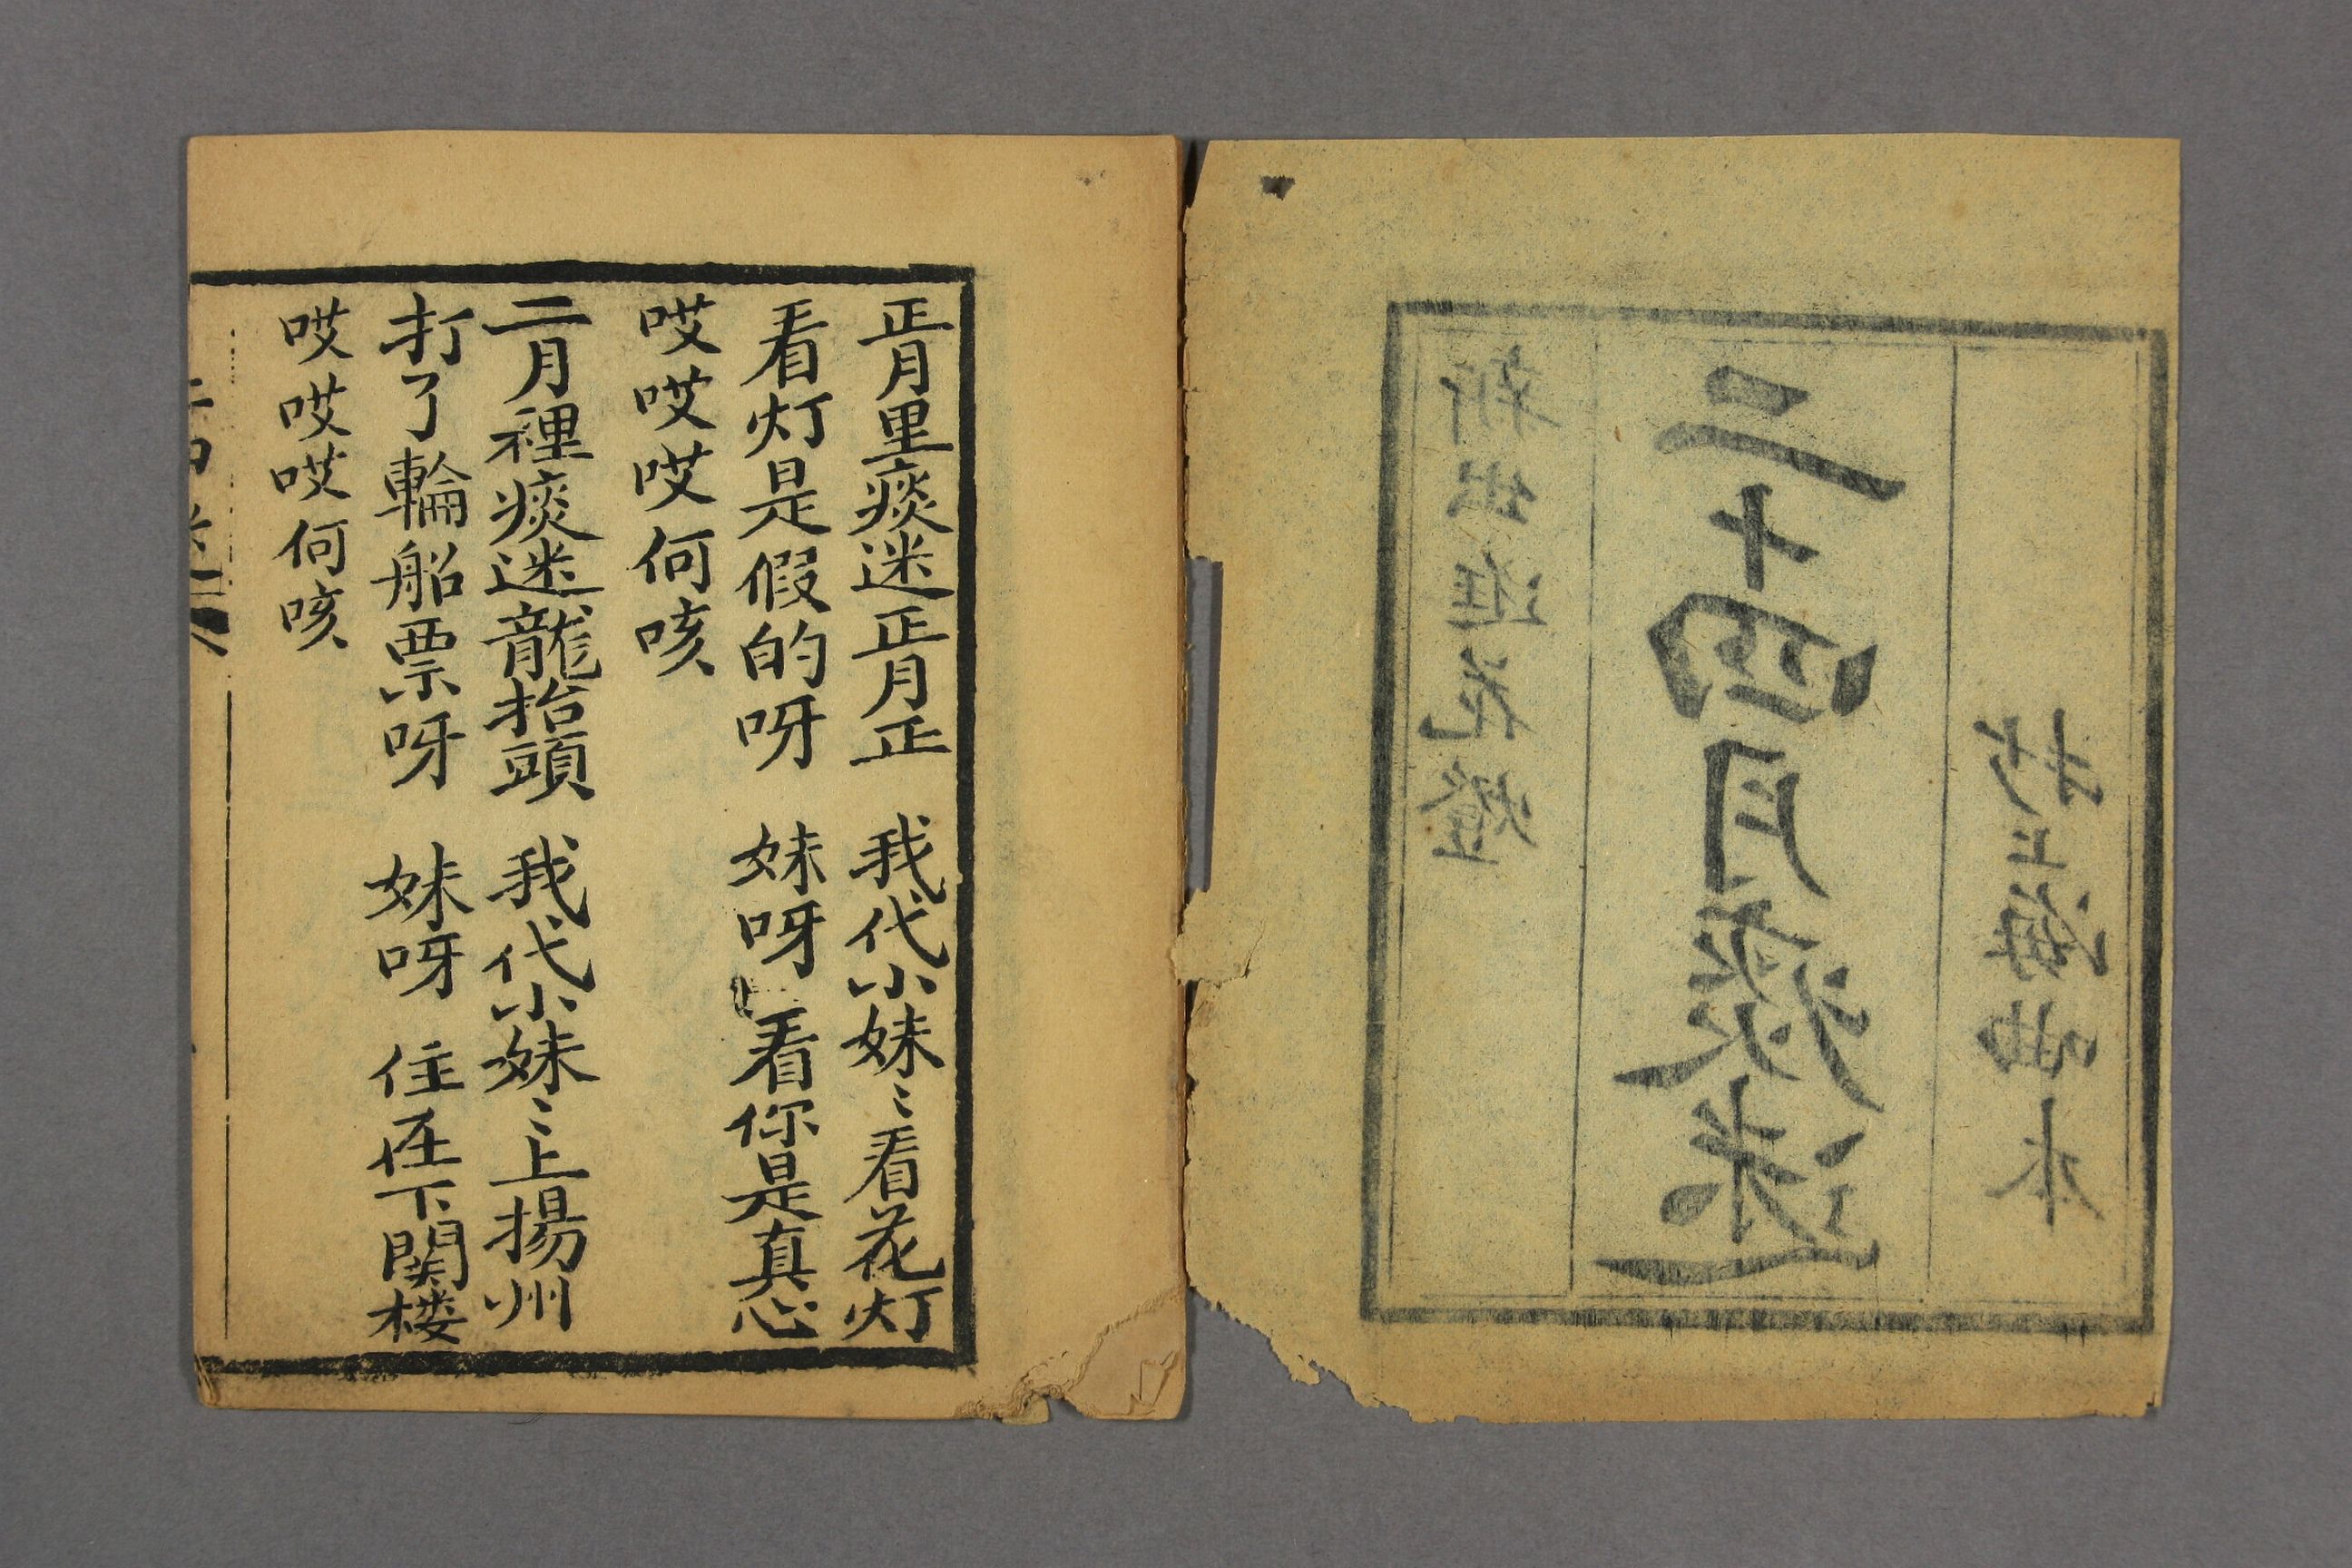 新出進花燈
二十四月痰迷
抄上海曲本
正月里痰迷正月正 我代小妹〻看花灯
看灯是假的呀 妹呀 看你是真心
哎哎哎何咳
二月裡痰迷龍抬頭 我代小妹〻上揚州
打了輪船票呀 妹呀 住在下関楼
哎哎哎何咳